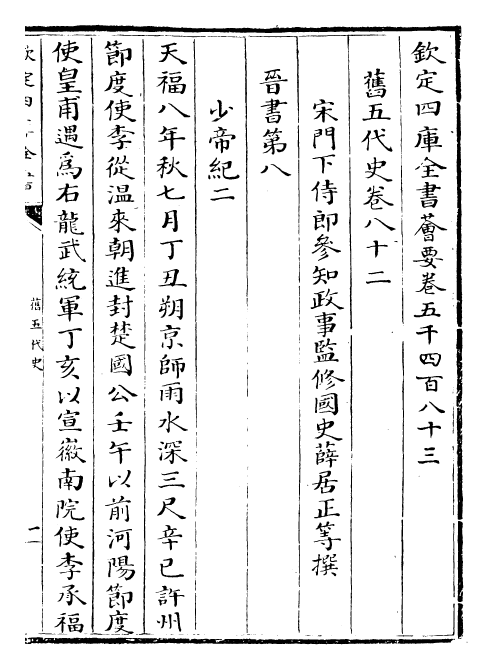 欽定四庫全書薈要卷五千四百八十三
舊五代史卷八十二
宋門下侍郎參知政事監修國史薛居正等撰
晉書第八
少帝紀二
天福八年秋七月丁丑朔京師雨水深三尺辛巳許州
節度使李從温來朝進封楚國公壬午以前河陽節度
使皇甫遇爲右龍武統軍丁亥以宣徽南院使李承福
欽定四庫全書
舊五代史